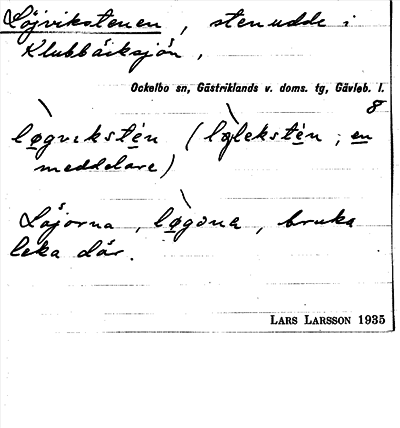 Löjvikstenen, stenudde i
Klubbäcksjön,
Ockelbo sn, Gästriklands v. doms. tg, Gävleb. l.
8
løgvıkstén (løgleksten, en
meddelare)
Löjorna, løgona, bruka
leka där.
LARS LARSSON 1935